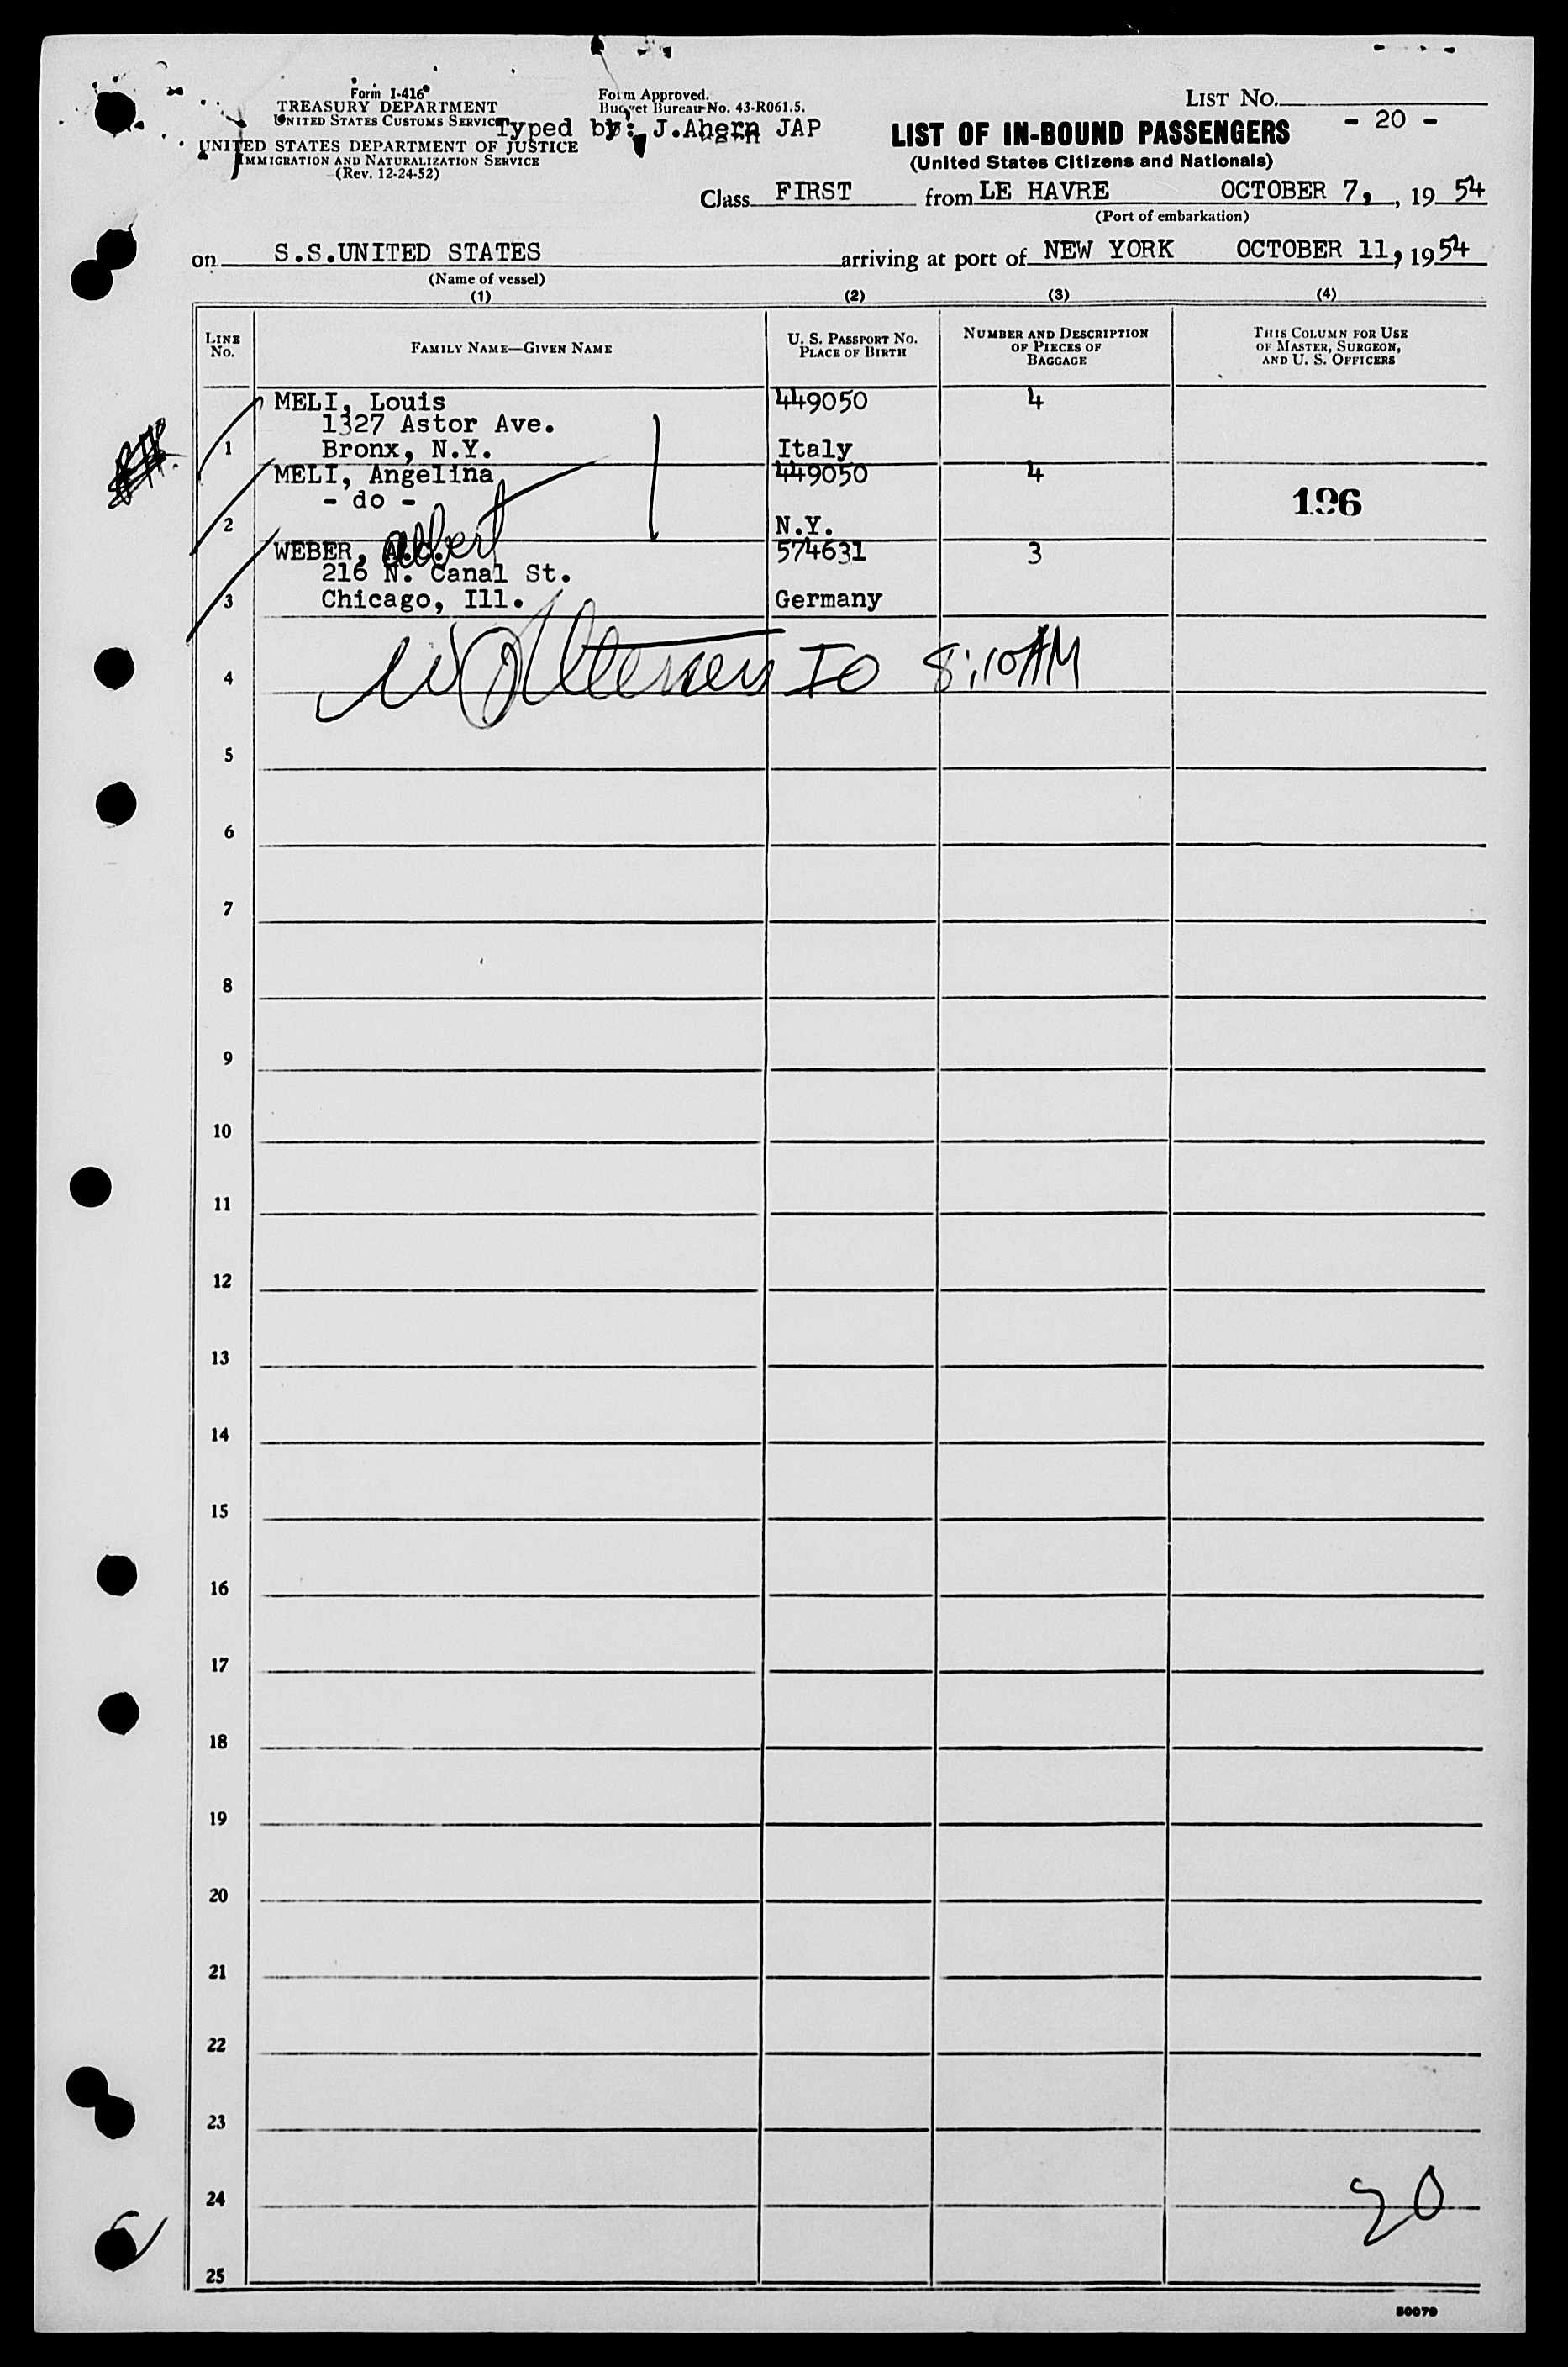 Form I-416
TREASURY DEPARTMENT
UNITED STATES CUSTOMS SERVICE
UNITED STATES DEPARTMENT OF JUSTICE
IMMIGRATION AND NATURALIZATION SERVICE
(Rev. 12-24-52)
Form Approved.
Budget Bureau No. 43-R061.5.
Typed by: J.Ahern JAP
LIST NO. - 20 -
LIST OF IN-BOUND PASSENGERS
(United States Citizens and Nationals)
Class FIRST from LE HAVRE OCTOBER 7, , 19 54
(Port of embarkation)
on S.S.UNITED STATES arriving at port of NEW YORK OCTOBER 11, 19 54
(Name of vessel)
(1) (2) (3) (4)
LINE NO. FAMILY NAME—GIVEN NAME U. S. PASSPORT NO. PLACE OF BIRTH NUMBER AND DESCRIPTION OF PIECES OF BAGGAGE THIS COLUMN FOR USE OF MASTER, SURGEON, AND U. S. OFFICERS
MELI, Louis 449050 4
1327 Astor Ave.
1 Bronx, N.Y. Italy
MELI, Angelina 449050 4
- do - 196
2 N.Y.
WEBER, A.C. Albert 574631 3
216 N. Canal St.
3 Chicago, Ill. Germany
4 IO 8:10AM
5
6
7
8
9
10
11
12
13
14
15
16
17
18
19
20
21
22
23
24 20
25
50079